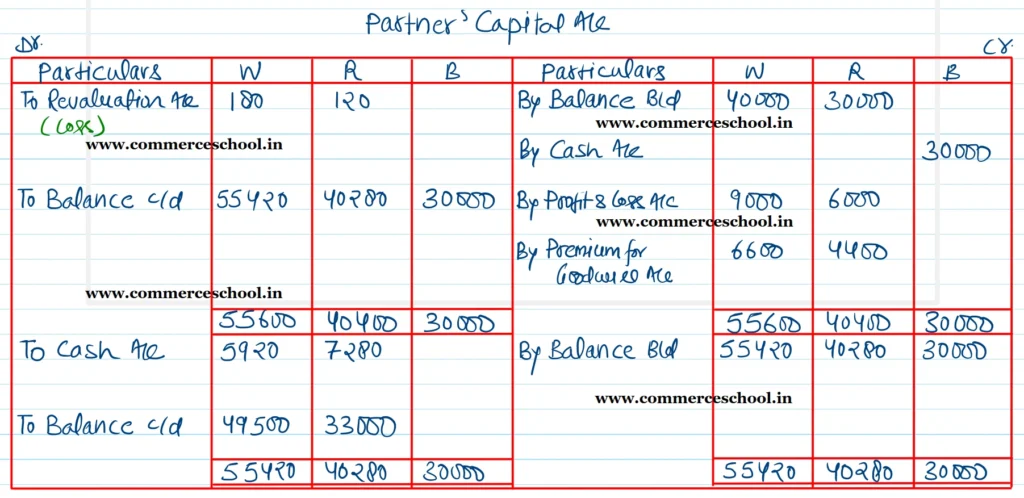 Partner's Capital A/c
Dr. Cr.
Particulars W R B Particulars W R B
To Revaluation A/c 180 120 By Balance B/d 40000 30000
(Loss) www.commerceschool.in
www.commerceschool.in By Cash A/c 30000
To Balance c/d 55420 40280 30000 By Profit & Loss A/c 9000 6000
www.commerceschool.in
By Premium for 6600 4400
Goodwill A/c
www.commerceschool.in
55600 40400 30000 55600 40400 30000
To Cash A/c 5920 7280 By Balance B/d 55420 40280 30000
www.commerceschool.in
To Balance c/d 49500 33000
55420 40280 30000 55420 40280 30000